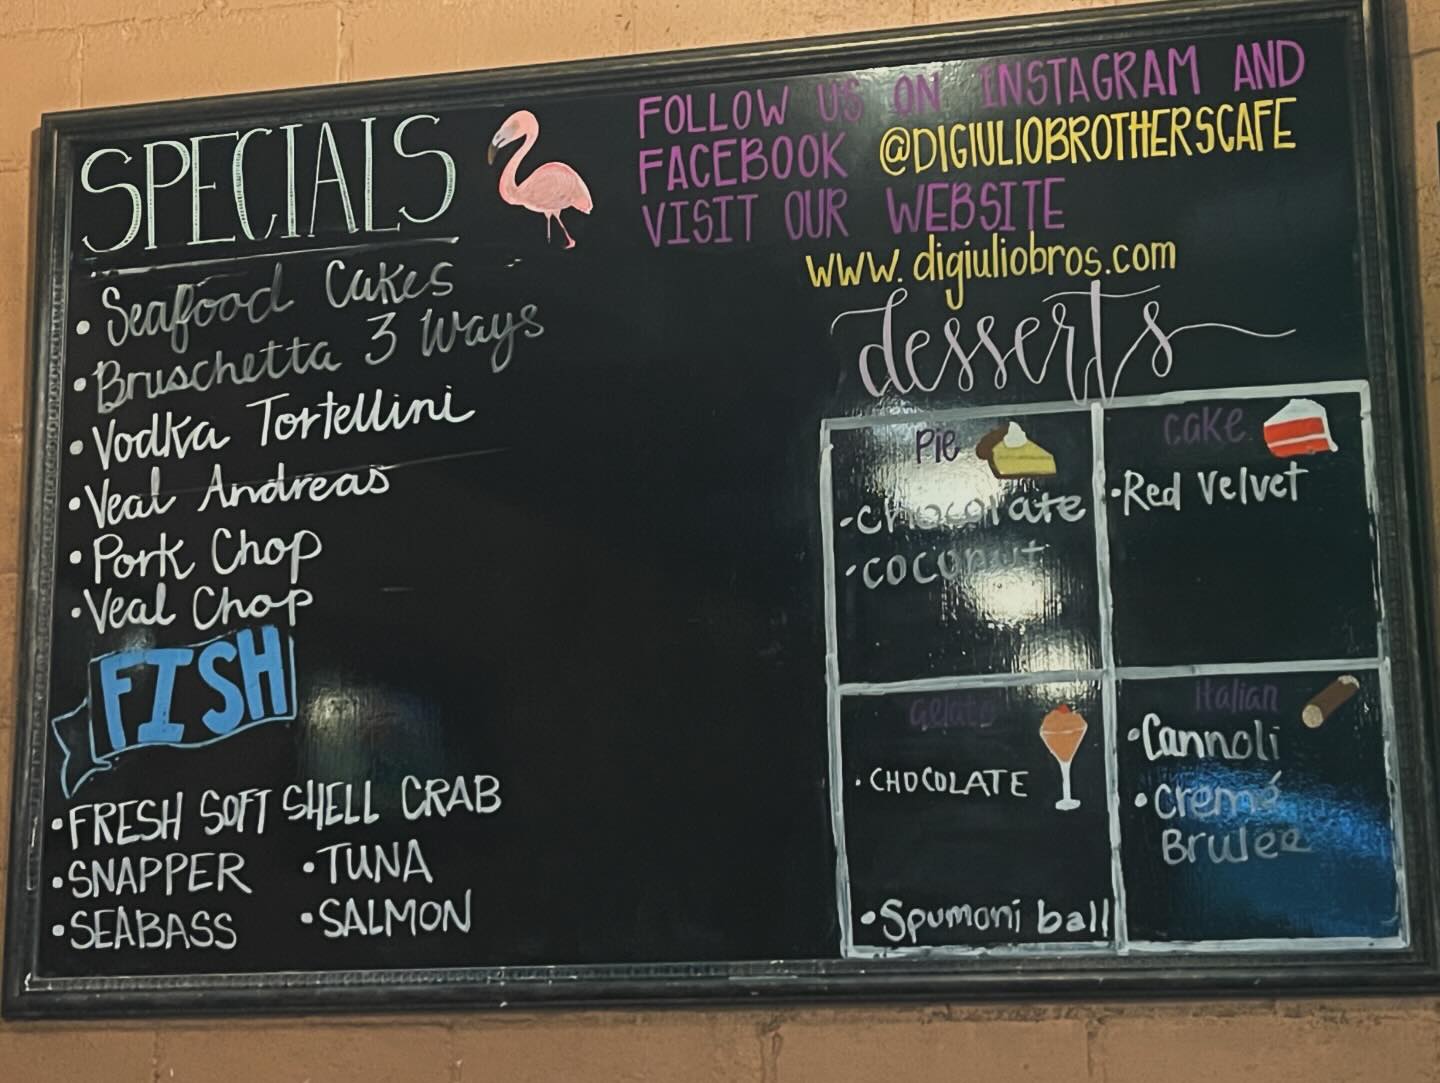 SPECIALS
• Seafood Cakes
• Bruschetta 3 Ways
• Vodka Tortellini
• Veal Andreas
• Pork Chop
• Veal Chop
FISH
• FRESH SOFT SHELL CRAB
• SNAPPER • TUNA
• SEABASS • SALMON
FOLLOW US ON INSTAGRAM AND
FACEBOOK @DIGIULIOBROTHERSCAFE
VISIT OUR WEBSITE
www.digiuliobros.com
desserts
Pie
• chocolate
• coconut
cake
• Red Velvet
Gelato
• CHOCOLATE
• Spumoni ball
Italian
• Cannoli
• Cremé
Brulee